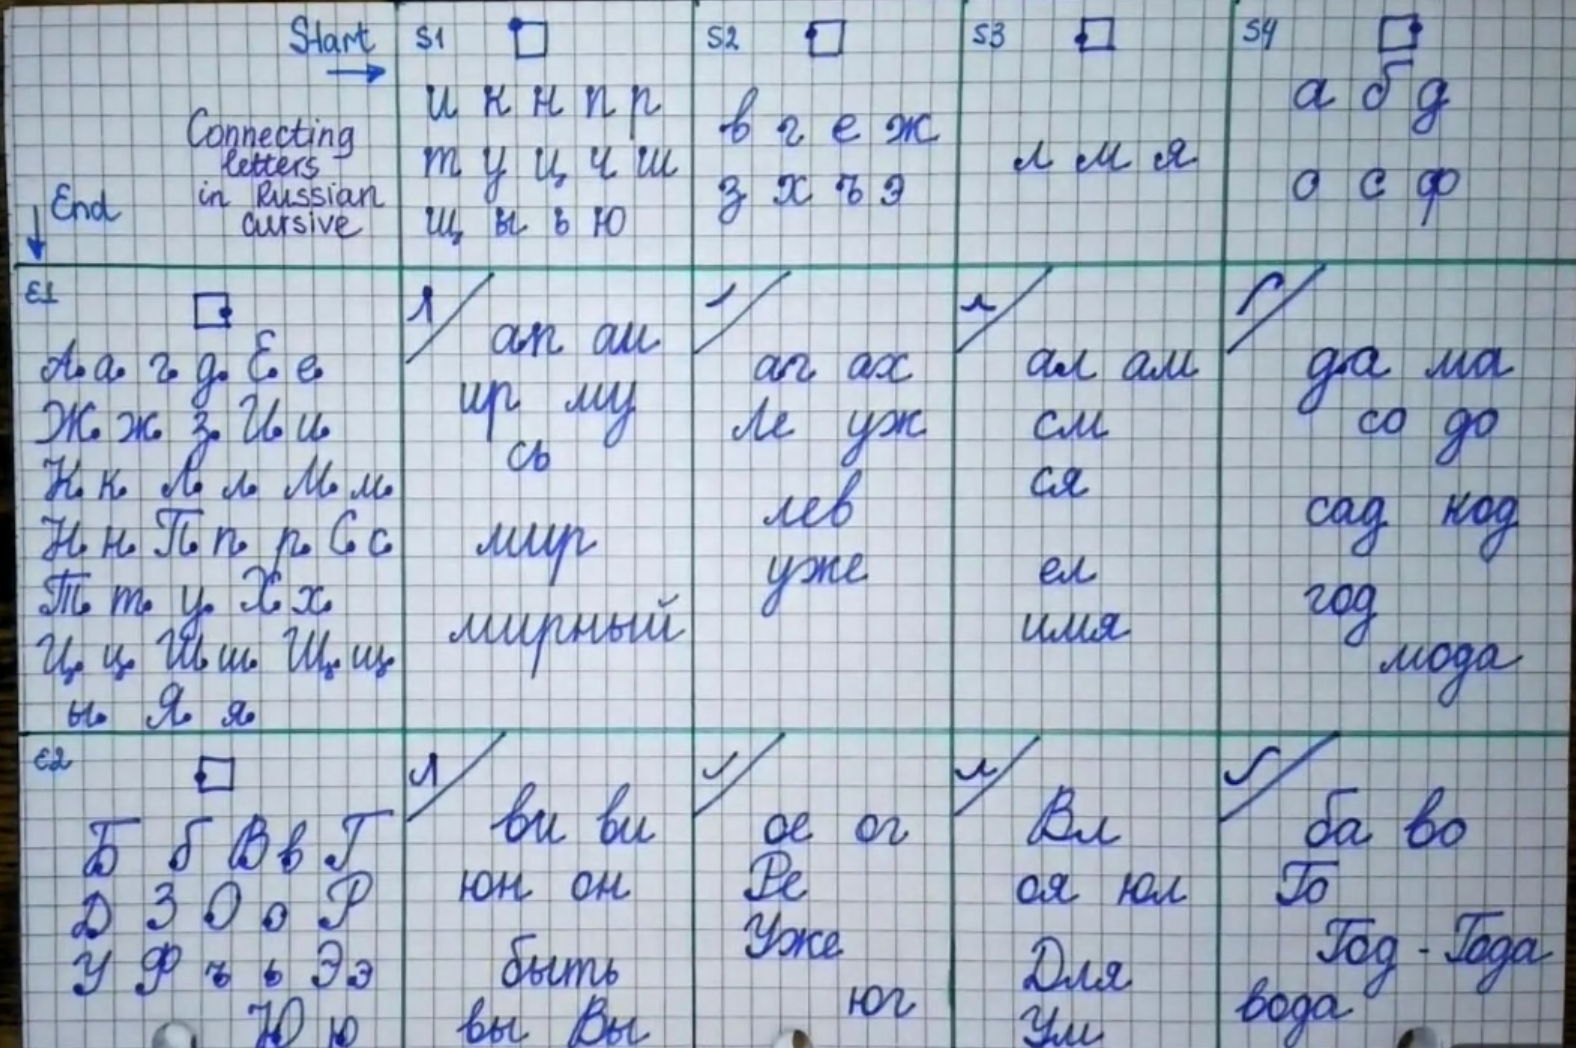 Start S1 S2 S3 S4
Connecting
letters
in Russian
cursive
End
и к н п р
т у ц ч ш
щ ы ь ю
в г е ж
з х ъ э
л м я
а б д
о с ф
E1
А а г д Е е
Ж ж з И и
К к Л л М м
Н н П п р С с
Т т у Х х
Ц ц Ш ш Щ щ
ы Я я
ап аи
ир му
сь
мир
мирный
аг ах
ле уж
лев
уже
ал ам
см
ся
ел
имя
да ма
со до
сад код
год
мода
E2
Б б В в Г
Д З О о Р
У Ф ъ ь Э э
Ю ю
ви ви
юн он
быть
вы Вы
ое ог
Ре
Уже
юг
Вл
оя юл
Для
Ум
ба во
Го
Год - Года
вода